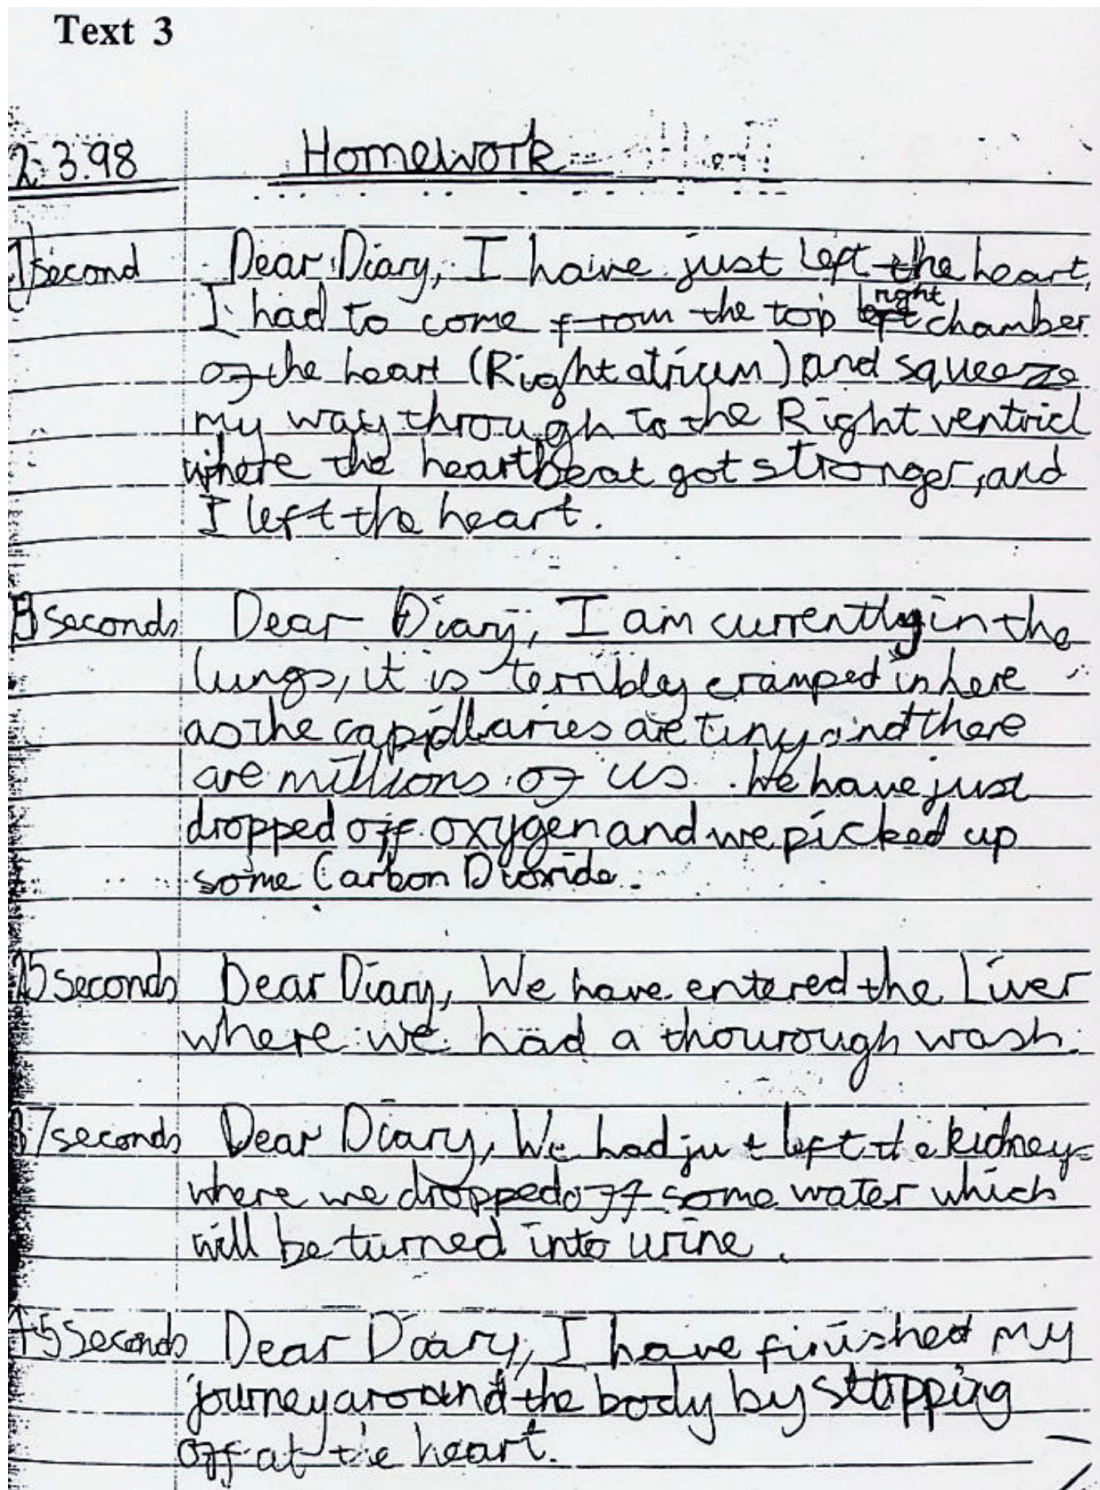 Text 3
2.3.98 Homework
1 second Dear Diary, I have just left the heart,
I had to come from the top left right chamber
of the heart (Right atrium) and squeeze
my way through to the Right ventricl
where the heartbeat got stronger, and
I left the heart.
8 seconds Dear Diary, I am currently in the
lungs, it is terribley cramped in here
as the capillaries are tiny and there
are millions of us. We have just
dropped off oxygen and we picked up
some Carbon Dioxide.
25 seconds Dear Diary, We have entered the Liver
where we had a thourough wash.
37 seconds Dear Diary, We had just left the kidney
where we dropped off some water which
will be turned into urine.
45 seconds Dear Diary, I have finished my
journey around the body by stopping
off at the heart.